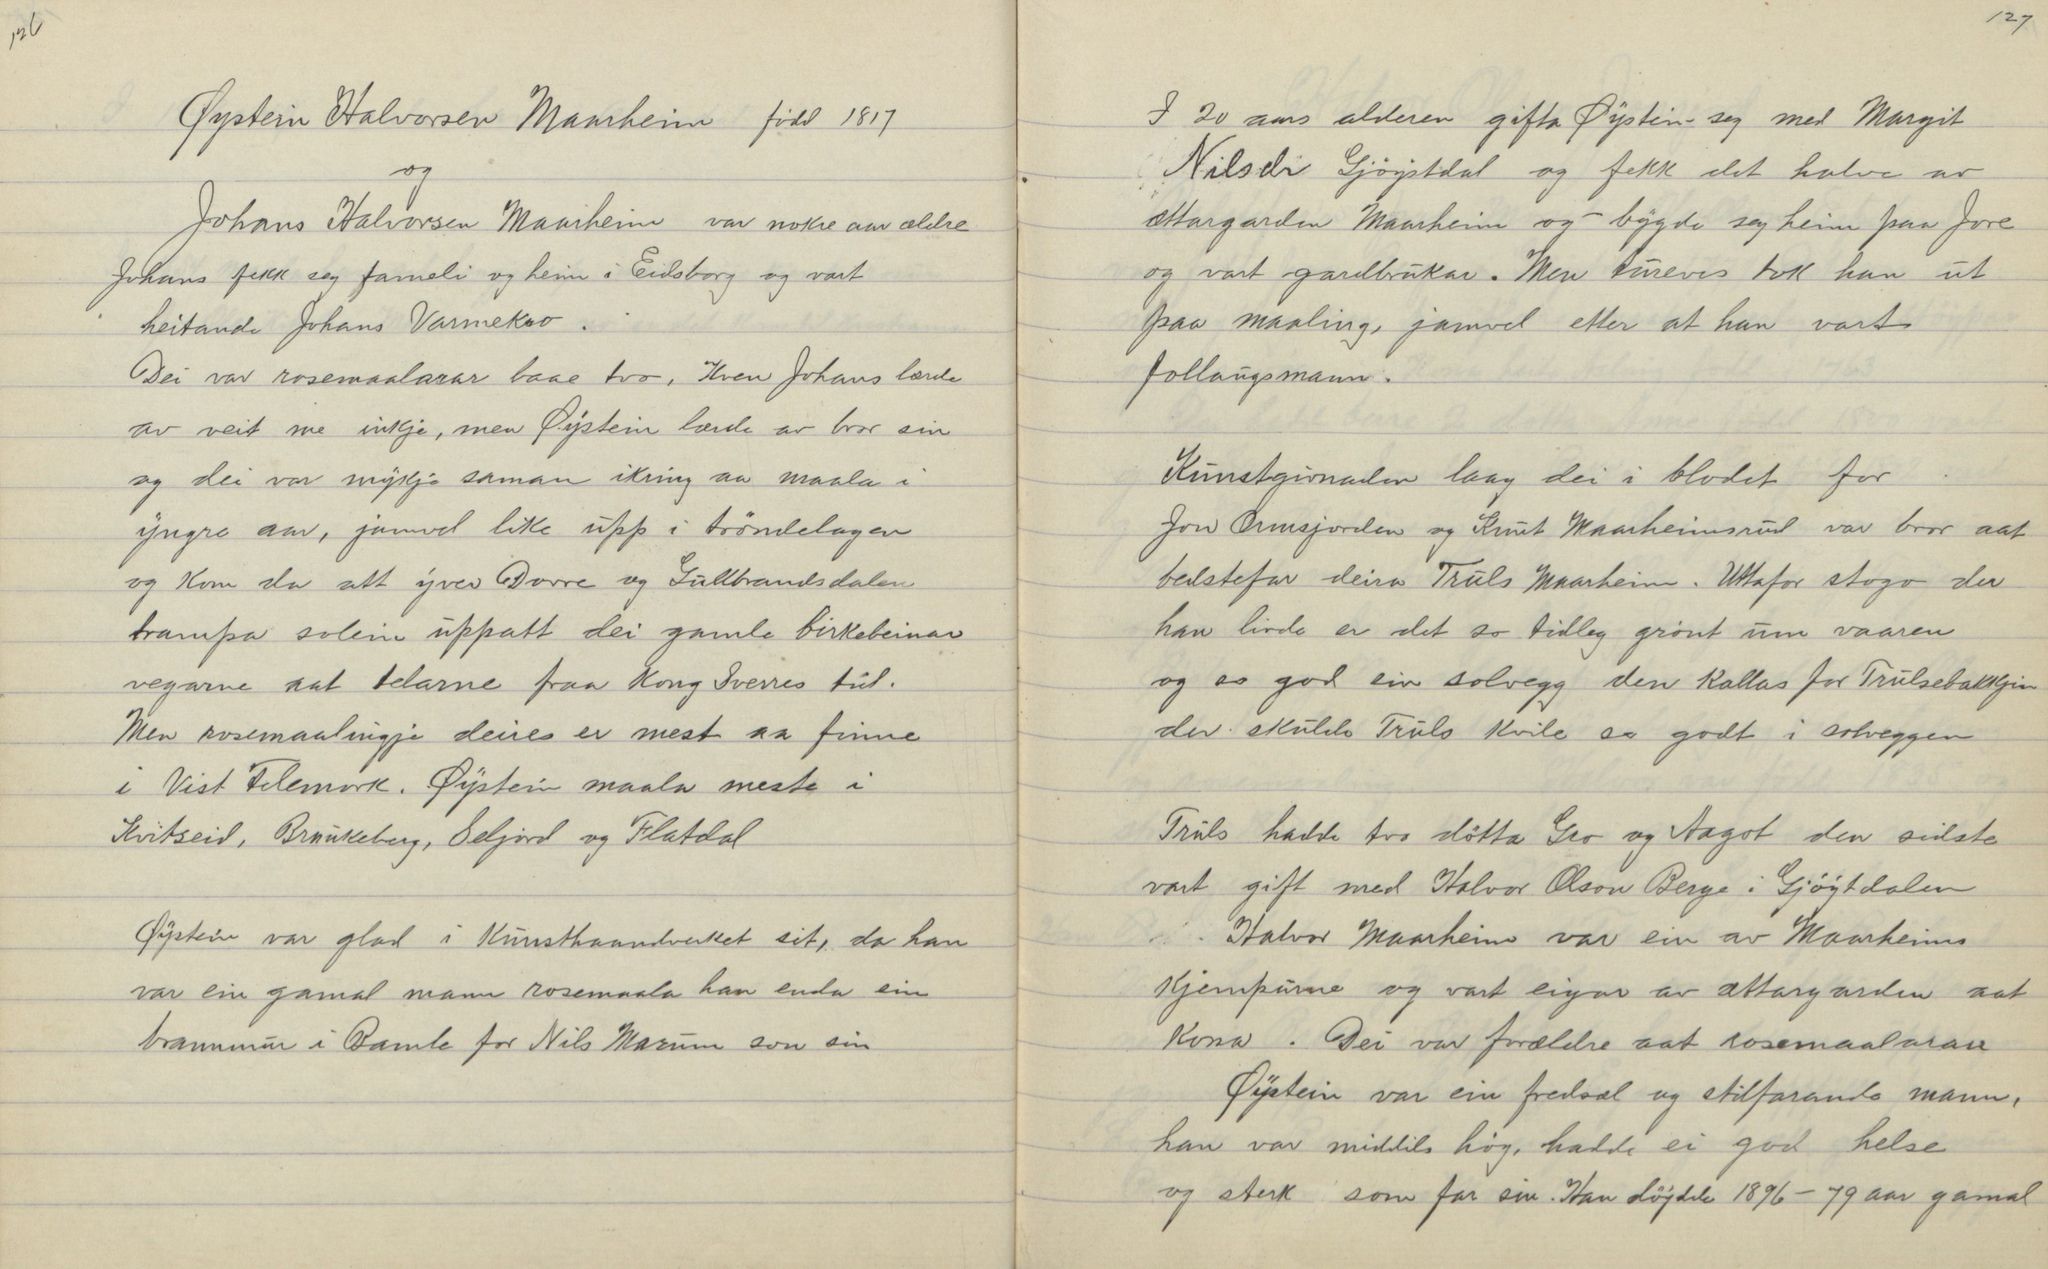 126
Øystein Halvorsen Maarheim född 1817
og
Johans Halvorsen Maarheim var nokre aar ældre
Johans fekk seg fameli og heim i Eidsborg og vart
heitande Johans Varmekao.
Dei var rosemaalarar baae two, Kven Johans lærde
av veit me inkje, men Øystein lærde av bror sin
og dei var mykje saman ikring aa maala i
yngre aar, jamvel like upp i tröndelagen
og kom da att yver Dovre og Gulbrandsdalen
trampa solein uppatt dei gamle birkebeinar
vegarne aat telarne fraa Kong Sverres tid.
Men rosemaalingje deires er mest aa finne
i Vist Telemork. Øystein maala meste i
Kvitseid, Brunkeberg, Seljord og Flatdal
Øystein var glad i Kunsthaandverket sit, da han
var ein gamal mann rosemaala han enda ein
brannmur i Bamle for Nils Marum son sin
127
I 20 aars alderen gifta Øystein seg med Margit
Nilsdi Gjöystdal og fekk det halve av
ættargarden Maarheim og bygde seg heim paa Jore
og vart gardbrukar. Men tureves tok han ut
paa maaling, jamvel etter at han vart
follaugsmann.
Kunstgivnaden laag dei i blodet for
Jon Ormsjorden og Knut Maarheimsrud var bror aat
bedstefar deira Truls Maarheim. Uttafor stogo der
han livde er det so tidleg grönt um vaaren
og so god ein solvegg den kallas for Trulsebakkjin
der skulde Truls kvile so godt i solveggen
Truls hadde two dötta Gro og Aagot den sidste
vart gift med Halvor Olson Berge i Gjöytdalen
Halvor Maarheim var ein av Maarheims
kjempurne og vart eigar av ættargarden aat
Kona. Dei var forældre aat rosemaalaran
Øystein var ein fredsæl og stilfarande mann,
han var middils hög, hadde ei god helse
og sterk som far sin. Han döydde 1896 - 79 aar gamal